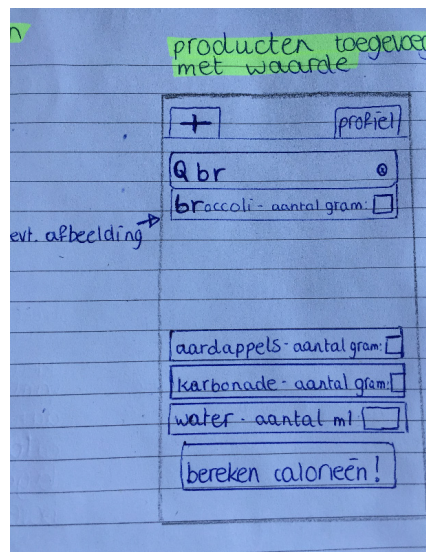 n
producten toegevoeg
met waarde
+ profiel
br
broccoli - aantal gram:
evt. afbeelding
aardappels - aantal gram:
karbonade - aantal gram:
water - aantal ml
bereken calorieën!